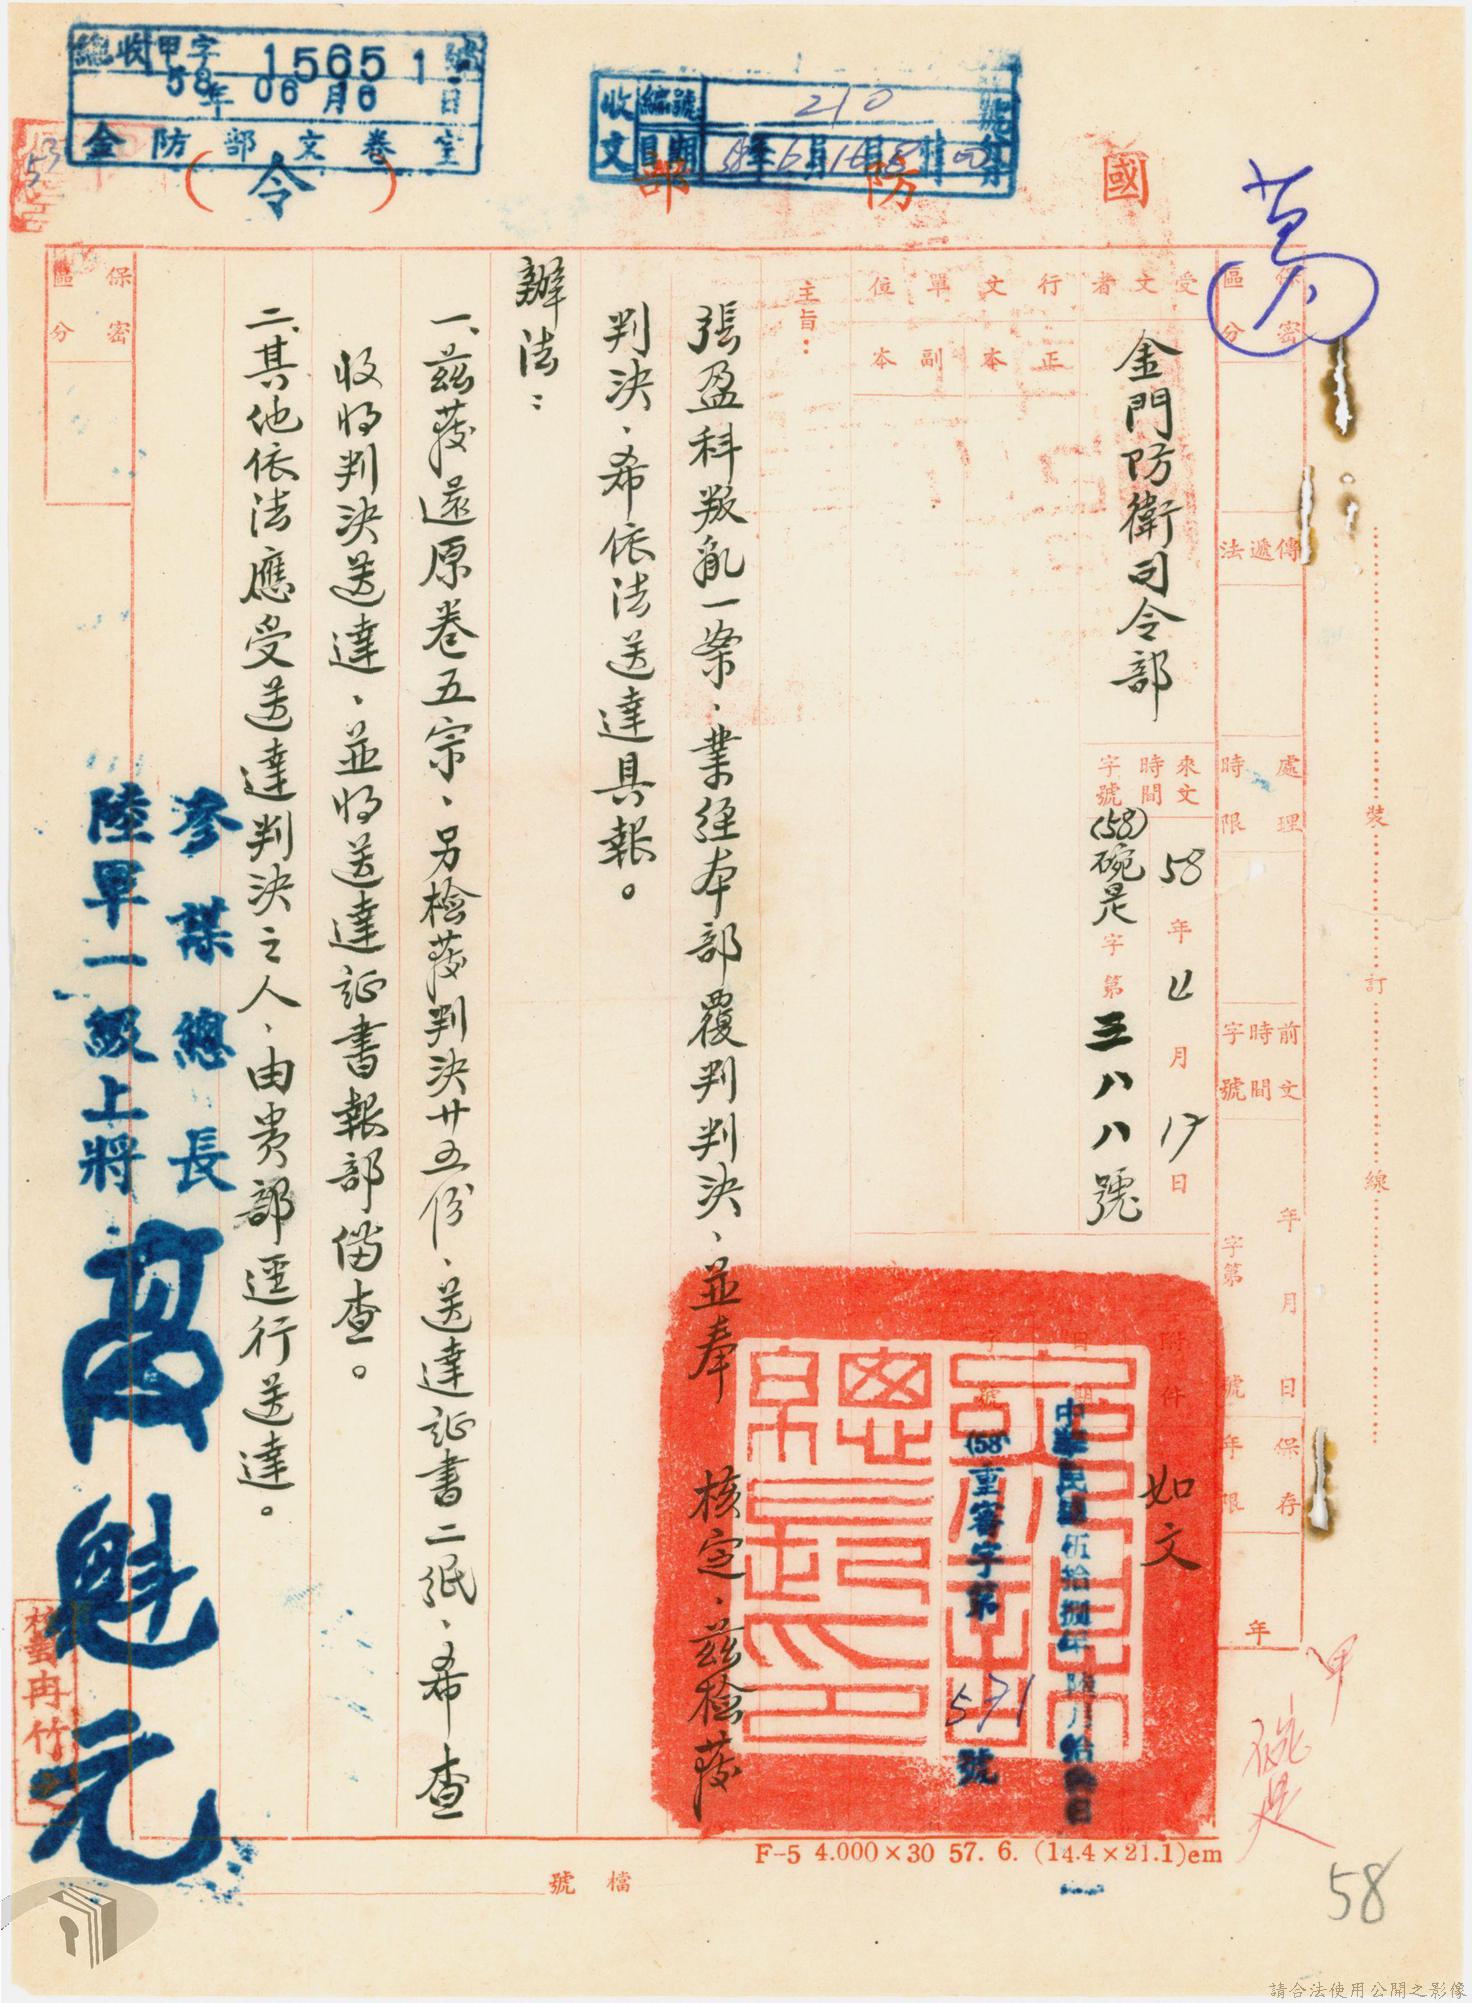 國防部
（令）
總收甲字 15651 號
58年06月6日
金防部文卷室
收文
編號 210
日期
53
保密區分
傳遞法
處理時限
前文時間字號
年月日
字第號
保存年限
年
受文者
金門防衛司令部
來文時間字號
58年4月17日
(58)碗是字第三八八號
附件
如文
行文單位
正本
副本
日期
中華民國伍拾捌年陸月拾日
字號
(58)重審字第571號
主旨：
張盈科叛亂一案、業經本部覆判判決、並奉　核定、茲檢發
判決、希依法送達具報。
辦法：
一、茲發還原卷五宗、另檢發判決廿五份、送達証書二紙、希查
收將判決送達、並將送達達証書報部備查。
二、其他依法應受送達判決之人、由貴部逕行送達。
參謀總長
陸軍一級上將
高魁元
保密區分
裝訂線
F-5 4.000×30 57. 6. (14.4×21.1)em
檔號
甲
碗是
58
請合法使用公開之影像